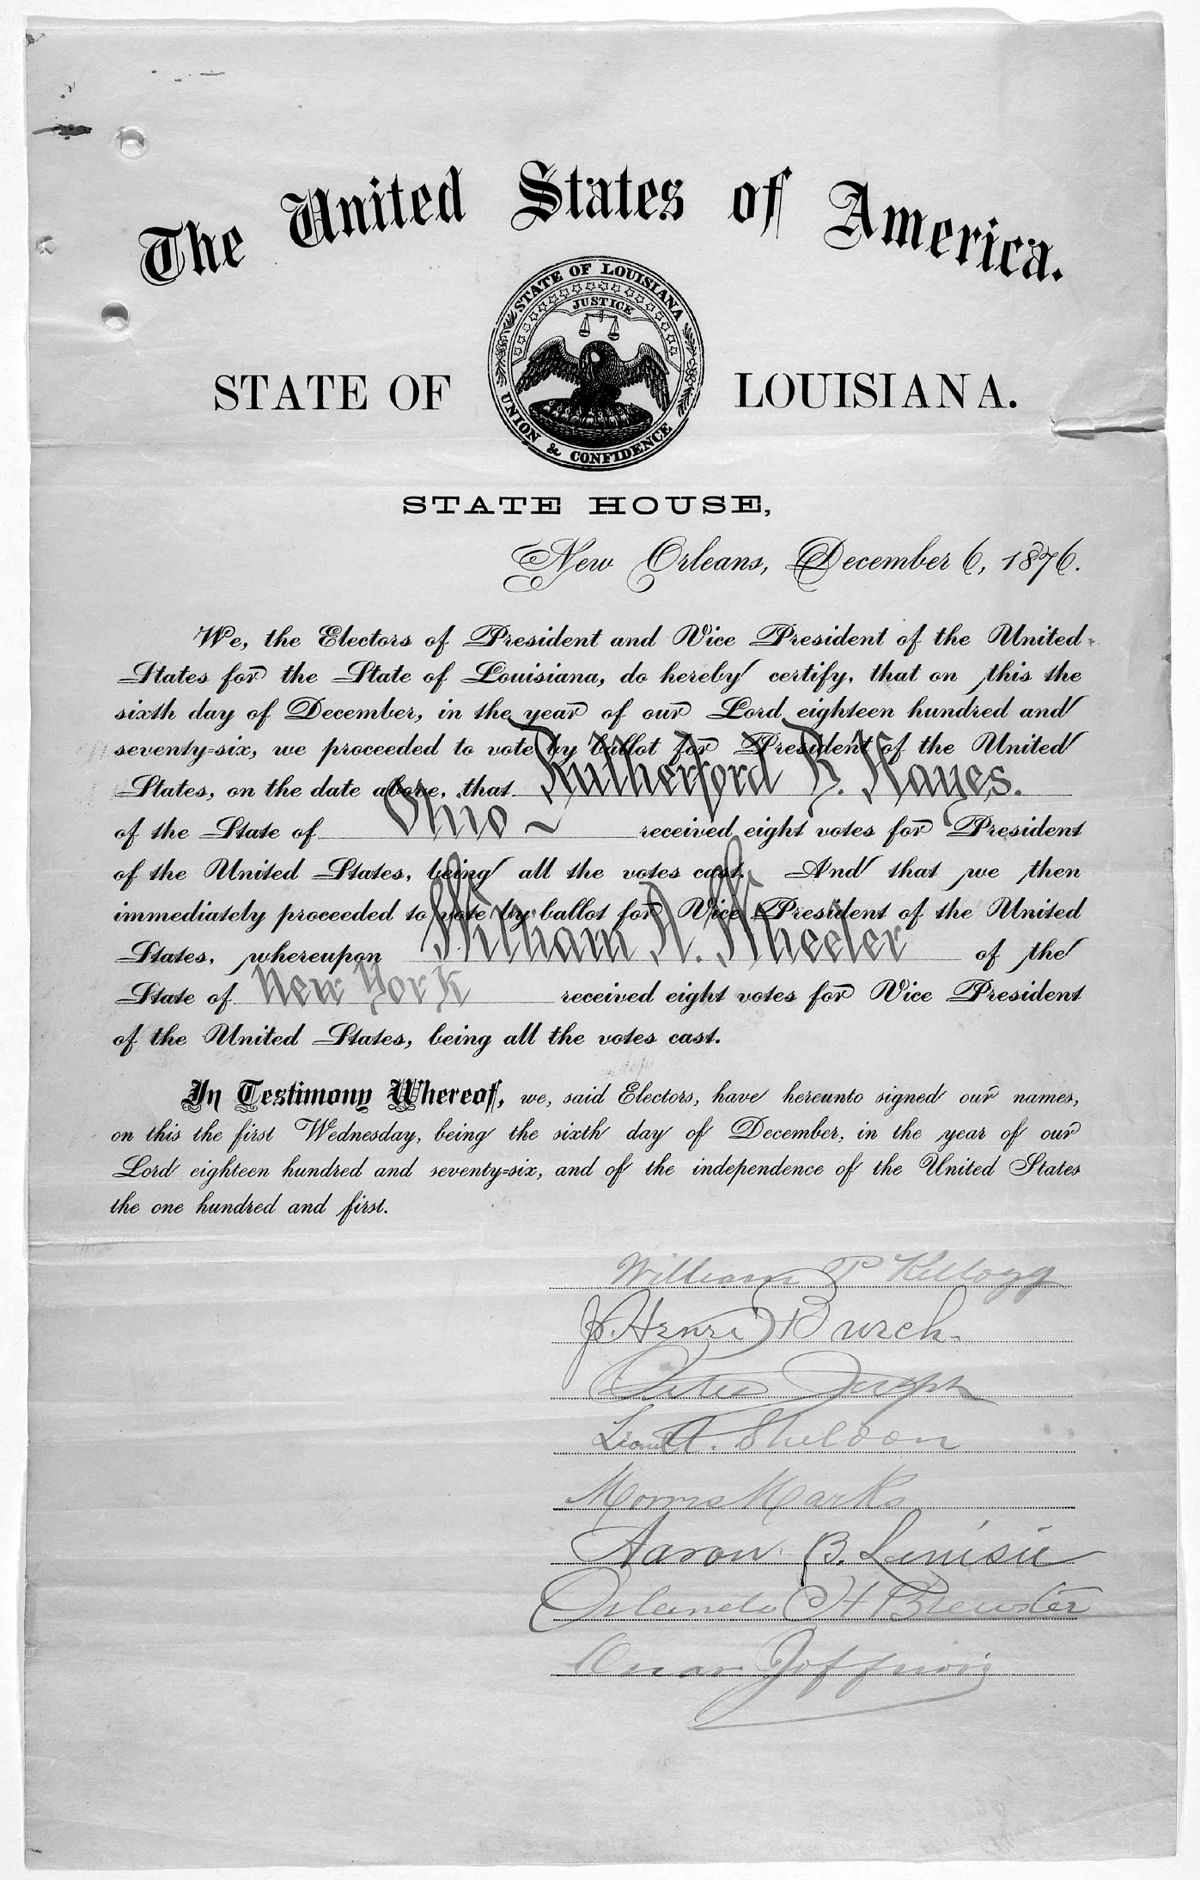 The United States of America.
STATE OF LOUISIANA
JUSTICE
UNION & CONFIDENCE
STATE OF LOUISIANA.
STATE HOUSE,
New Orleans, December 6, 1876.
We, the Electors of President and Vice President of the United
States for the State of Louisiana, do hereby certify, that on this the
sixth day of December, in the year of our Lord eighteen hundred and
seventy-six, we proceeded to vote by ballot for President of the United
States, on the date above, that Rutherford B. Hayes.
of the State of Ohio received eight votes for President
of the United States, being all the votes cast. And that we then
immediately proceeded to vote by ballot for Vice President of the United
States, whereupon William A. Wheeler of the
State of New York received eight votes for Vice President
of the United States, being all the votes cast.
In Testimony Whereof, we, said Electors, have hereunto signed our names,
on this the first Wednesday, being the sixth day of December, in the year of our
Lord eighteen hundred and seventy-six, and of the independence of the United States
the one hundred and first.
William P Kellogg
J. Henri Burch.
Peter Joseph
Lionel A. Sheldon
Morris Marks
Aaron B. Levisee
Orlando H Brewster
Oscar Joffrion